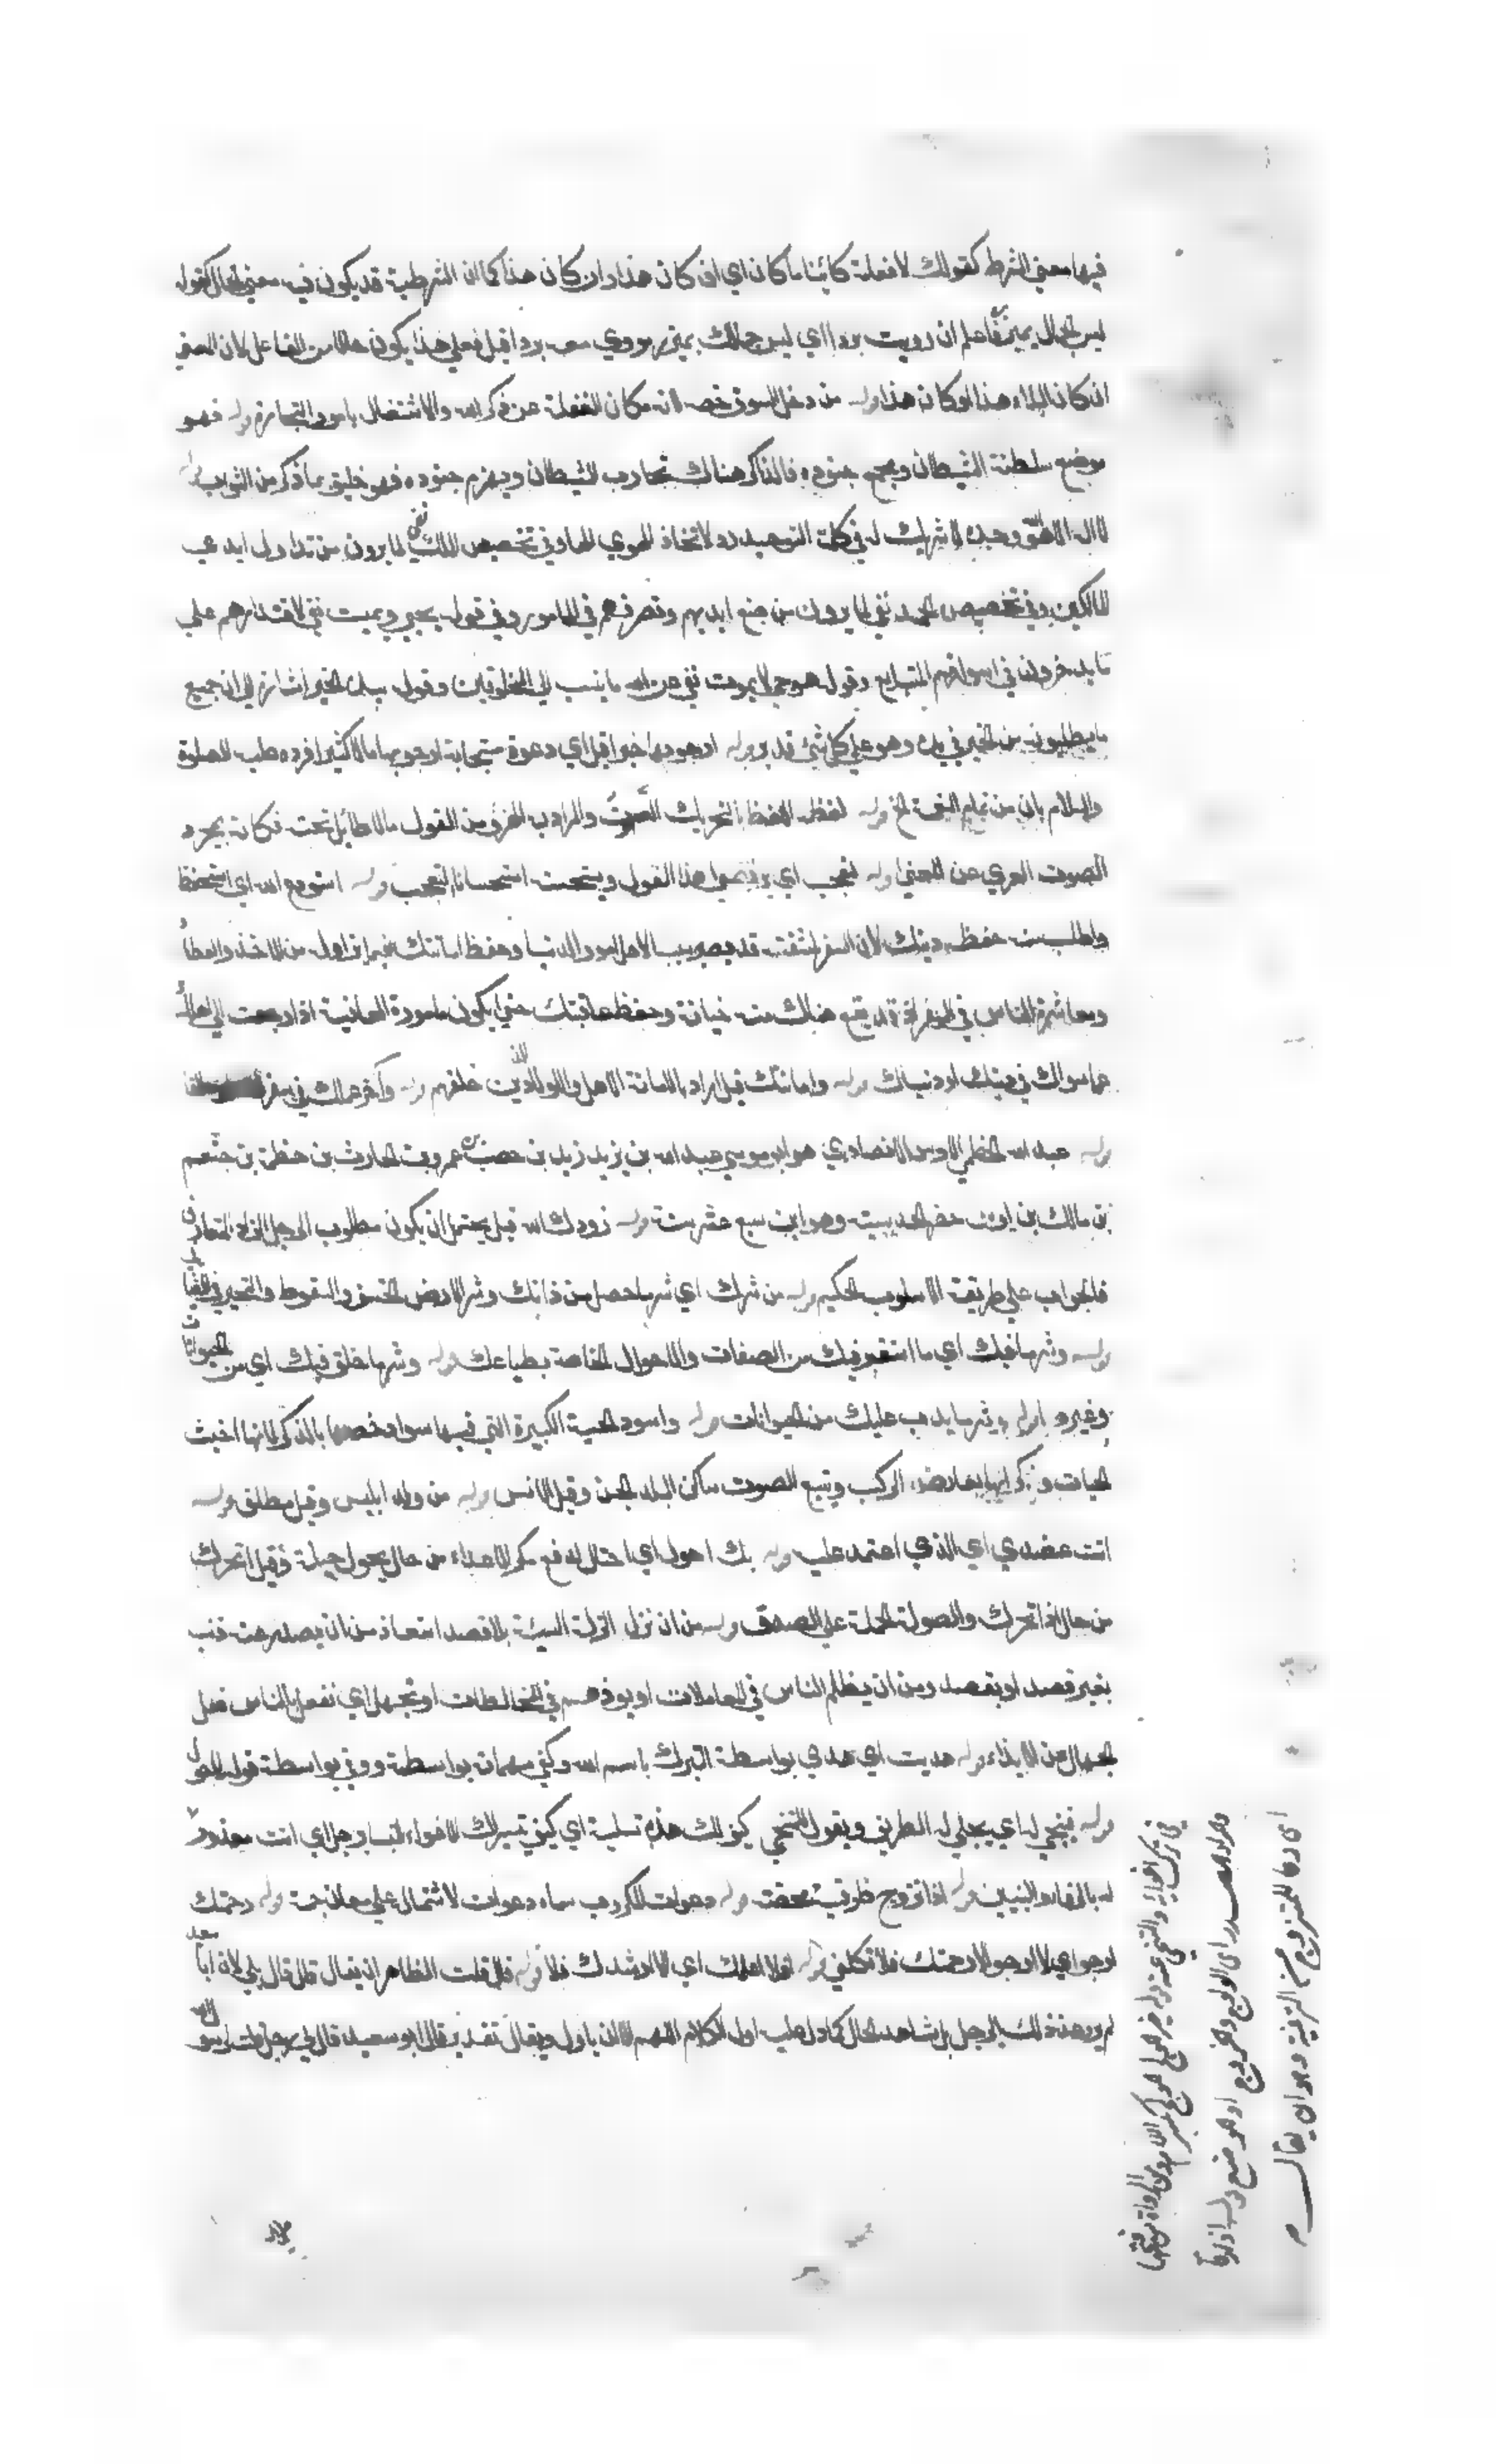 فيها معني الشرط كقولك لافعلنه كائنا ما كان اي ان كان هذا وان كان هذا كما ان الشرطية قد يكون فيه معني الحال كقوله
ليس الجمال بميزر فاعلم ان رديت بردا اي ليس جمالك بميزر مردي معه بردا قيل فعلي هذا يكون حالا من الفاعل لان المعني
ان كان البلاء هذا او كان هذا قوله من دخل السوق خصه لانه مكان الغفلة عن ذكر الله والاشتغال بامور التجارة قوله فهو
موضع سلطنة الشيطان ومجمع جنوده فالذاكر هناك يحارب الشيطان ويهزم جنوده فهو خليق بما ذكر من الثواب قوله
لا اله الا الله وحده لا شريك له في كلمة التوحيد رد لاتخاذ الهوي الها وفي تخصيص الملك نفي لما يرون من تداول ايدي
المالكين وفي تخصيص الحمد نفي لما يرون من صنع ايديهم وتصرفهم في الامور وفي قوله يحيي ويميت نفي لاقتدارهم علي
ما يدخرون في اسواقهم للتبايع وقوله هو حي لا يموت نفي عن الله ما ينسب الي المخلوقين وقوله بيده الخير اشارة الي ان جميع
ما يطلبونه من الخير في يده وهو علي كل شئ قدير قوله ارجو بها خيرا قيل اي دعوة مستجابة ارجو بها مالا كثيرا فرده صلى الصلوة
والسلام بان من تمام النعمة الخ قوله لغطه اللغط بالتحريك الصوت والمراد به الهزؤ من القول مالا طائل تحته فكانه مجرد
الصوت العري عن المعني قوله ليعجب اي يرتضي هذا القول ويستحسنه استحسان التعجب قوله استودع الله اي استحفظ
واطلب منه حفظ دينك لان السفر لمشقته قد يصير سببا لاهمال امور الدنيا وحفظ امانتك فيما تزاول من الاخذ والعطا
ومعاشرة الناس في السفر اذ قد يقع هناك منه خيانة وحفظ عاقبتك حتي يكون مامون العاقبة اذا رجعت الي اهلك
عما سواك في دينك او دنياك قوله وامانتك قيل اراد بالامانة الاهل والاولاد الذين خلفهم قوله وآخر عملك في سفر
قوله عبد الله الخطمي الاوسي الانصاري هو ابو موسي عبد الله بن يزيد زيد بن حصن بن عمرو بن الحارث بن خطمة بن جشم
بن مالك بن اوس حضر الحديبية وهو ابن سبع عشر سنة قوله زودك الله قيل يحتمل ان يكون مطلوب الرجل الزاد المتعارف
فالجواب علي طريقة الاسلوب الحكيم قوله من شرك اي شر ما حصل من ذاتك وشر الارض الخسف والسقوط والتحير في الفيافي
قوله وشر ما فيك اي ما استقر فيك من الصفات والاحوال الخاصة بطباعك قوله وشر ما خلق فيك اي من الحيوانات
وغيره قوله وشر ما يدب عليك من الحيوانات قوله واسود الحية الكبيرة التي فيها سواد خصها بالذكر لانها اخبث
الحيات وذكر انها يعارض الركب ويتبع الصوت ساكن البلد الجن وقيل الانس قوله من ولد ابليس وقيل مطلق قوله
انت عضدي اي الذي اعتمد عليه قوله بك احول اي احتال لدفع مكر الاعداء من حال يحول حيلة وقيل اتحرك
من حال اذا تحرك والصولة الحملة علي العدو قوله من ان نزل الزلة السيئة بلا قصد استعاذ من ان يصدر عنه ذنب
بغير قصد او بقصد ومن ان يظلم الناس في المعاملات او يوذهم في المخالطات او تجهل اي نفعل بالناس فعل
الجهال من الايذاء قوله هديت اي هدي بواسطة التبرك باسم الله وكفي مهماته بواسطة ووقي بواسطة قول لا حول
قوله فيتنحي له اي يخلي له الطريق ويقول المتنحي كيف لك هذه تسلية اي كيف تيسر لك لاغواء رجل اي انت معذور
له بالرفاء والبنين قوله اذا تزوج ظرفية محضة قوله دعوات المكروب سماه دعوات لاشتماله علي معان جمة قوله رحمتك
ارجو اي لا ارجو الا رحمتك فلا تكلني قوله افلا اعلمك اي الا ارشدك فلا قوله قال قلت الظاهر ان يقال قال قال بلي لان ابا سعيد
لم يرو هذا ذلك الرجل بل شاهد الحال كما دل عليه اول الكلام اللهم الا ان ياول ويقال تقديره قال ابو سعيد قال لي رجل قلت لرسول الله
اي دعا للمتزوج من الترفية وهو ان يقال